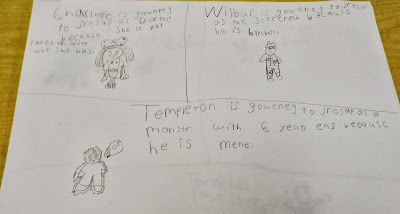 Charlotte is gowneg
to dresup as
because She is ver
with
wot she has.
Wilbur is goweneg to dresup
as the because
he is
Templeton is goweneg to dresup as a
monstr with 6 yello eas because
he is mene.